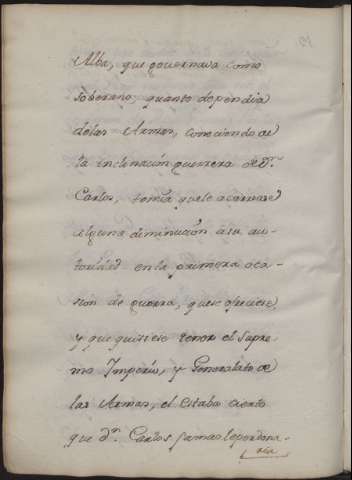 Alba, que governava como
soberano, quanto dependia
delas Armas, conociendo de
la inclinacion guerrera de Dn.
Carlos, temia quele acarreare
alguna diminucion a su au-
toridad en la primera oca-
sion de guerra, quese ofreciese,
y que quisiese tener el Supre-
mo Imperio, y Generalato de
las Armas, el estaba cierto
que dn. Carlos jamas leperdona-
ria